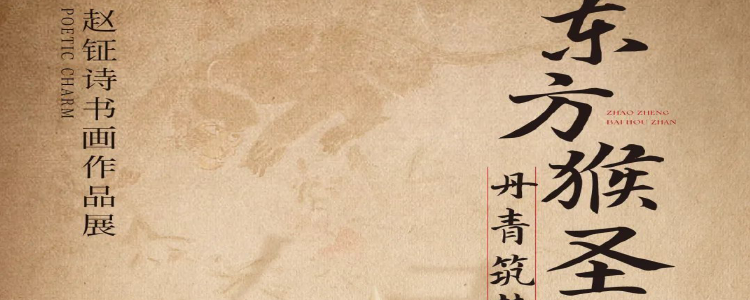 东方猴圣
ZHAO ZHENG
BAI HOU ZHAN
丹青筑
赵钲诗书画作品展
POETIC CHARM